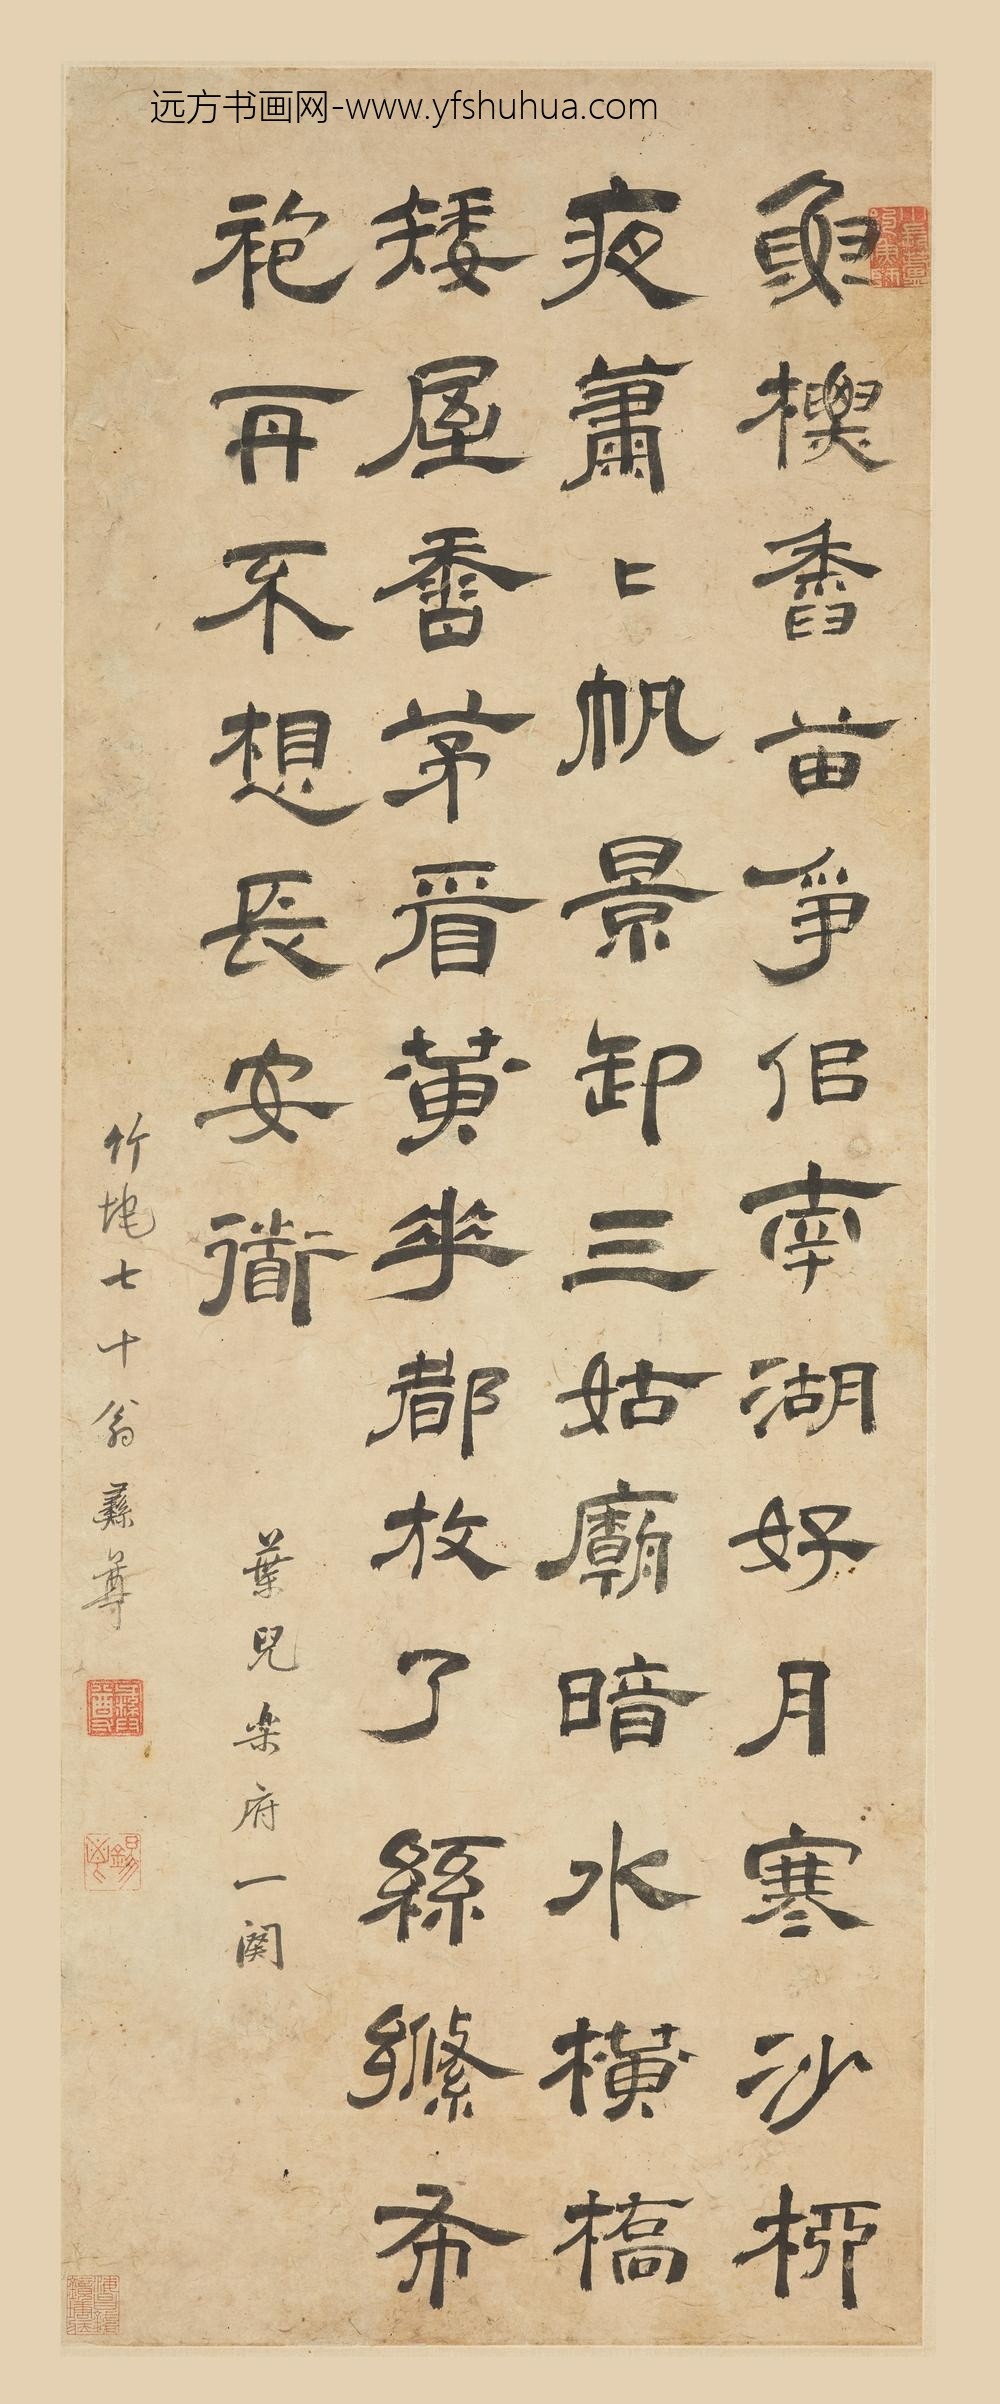 远方书画网-www.yfshuhua.com
香苗爭佀南湖好月寒沙柳
夜蕭〻帆景卸三姑廟暗水橫橋
矮屋香茅看黃華都放了絲絛布
袍再不想長安衜
葉兒樂府一闋
竹垞七十翁彝尊